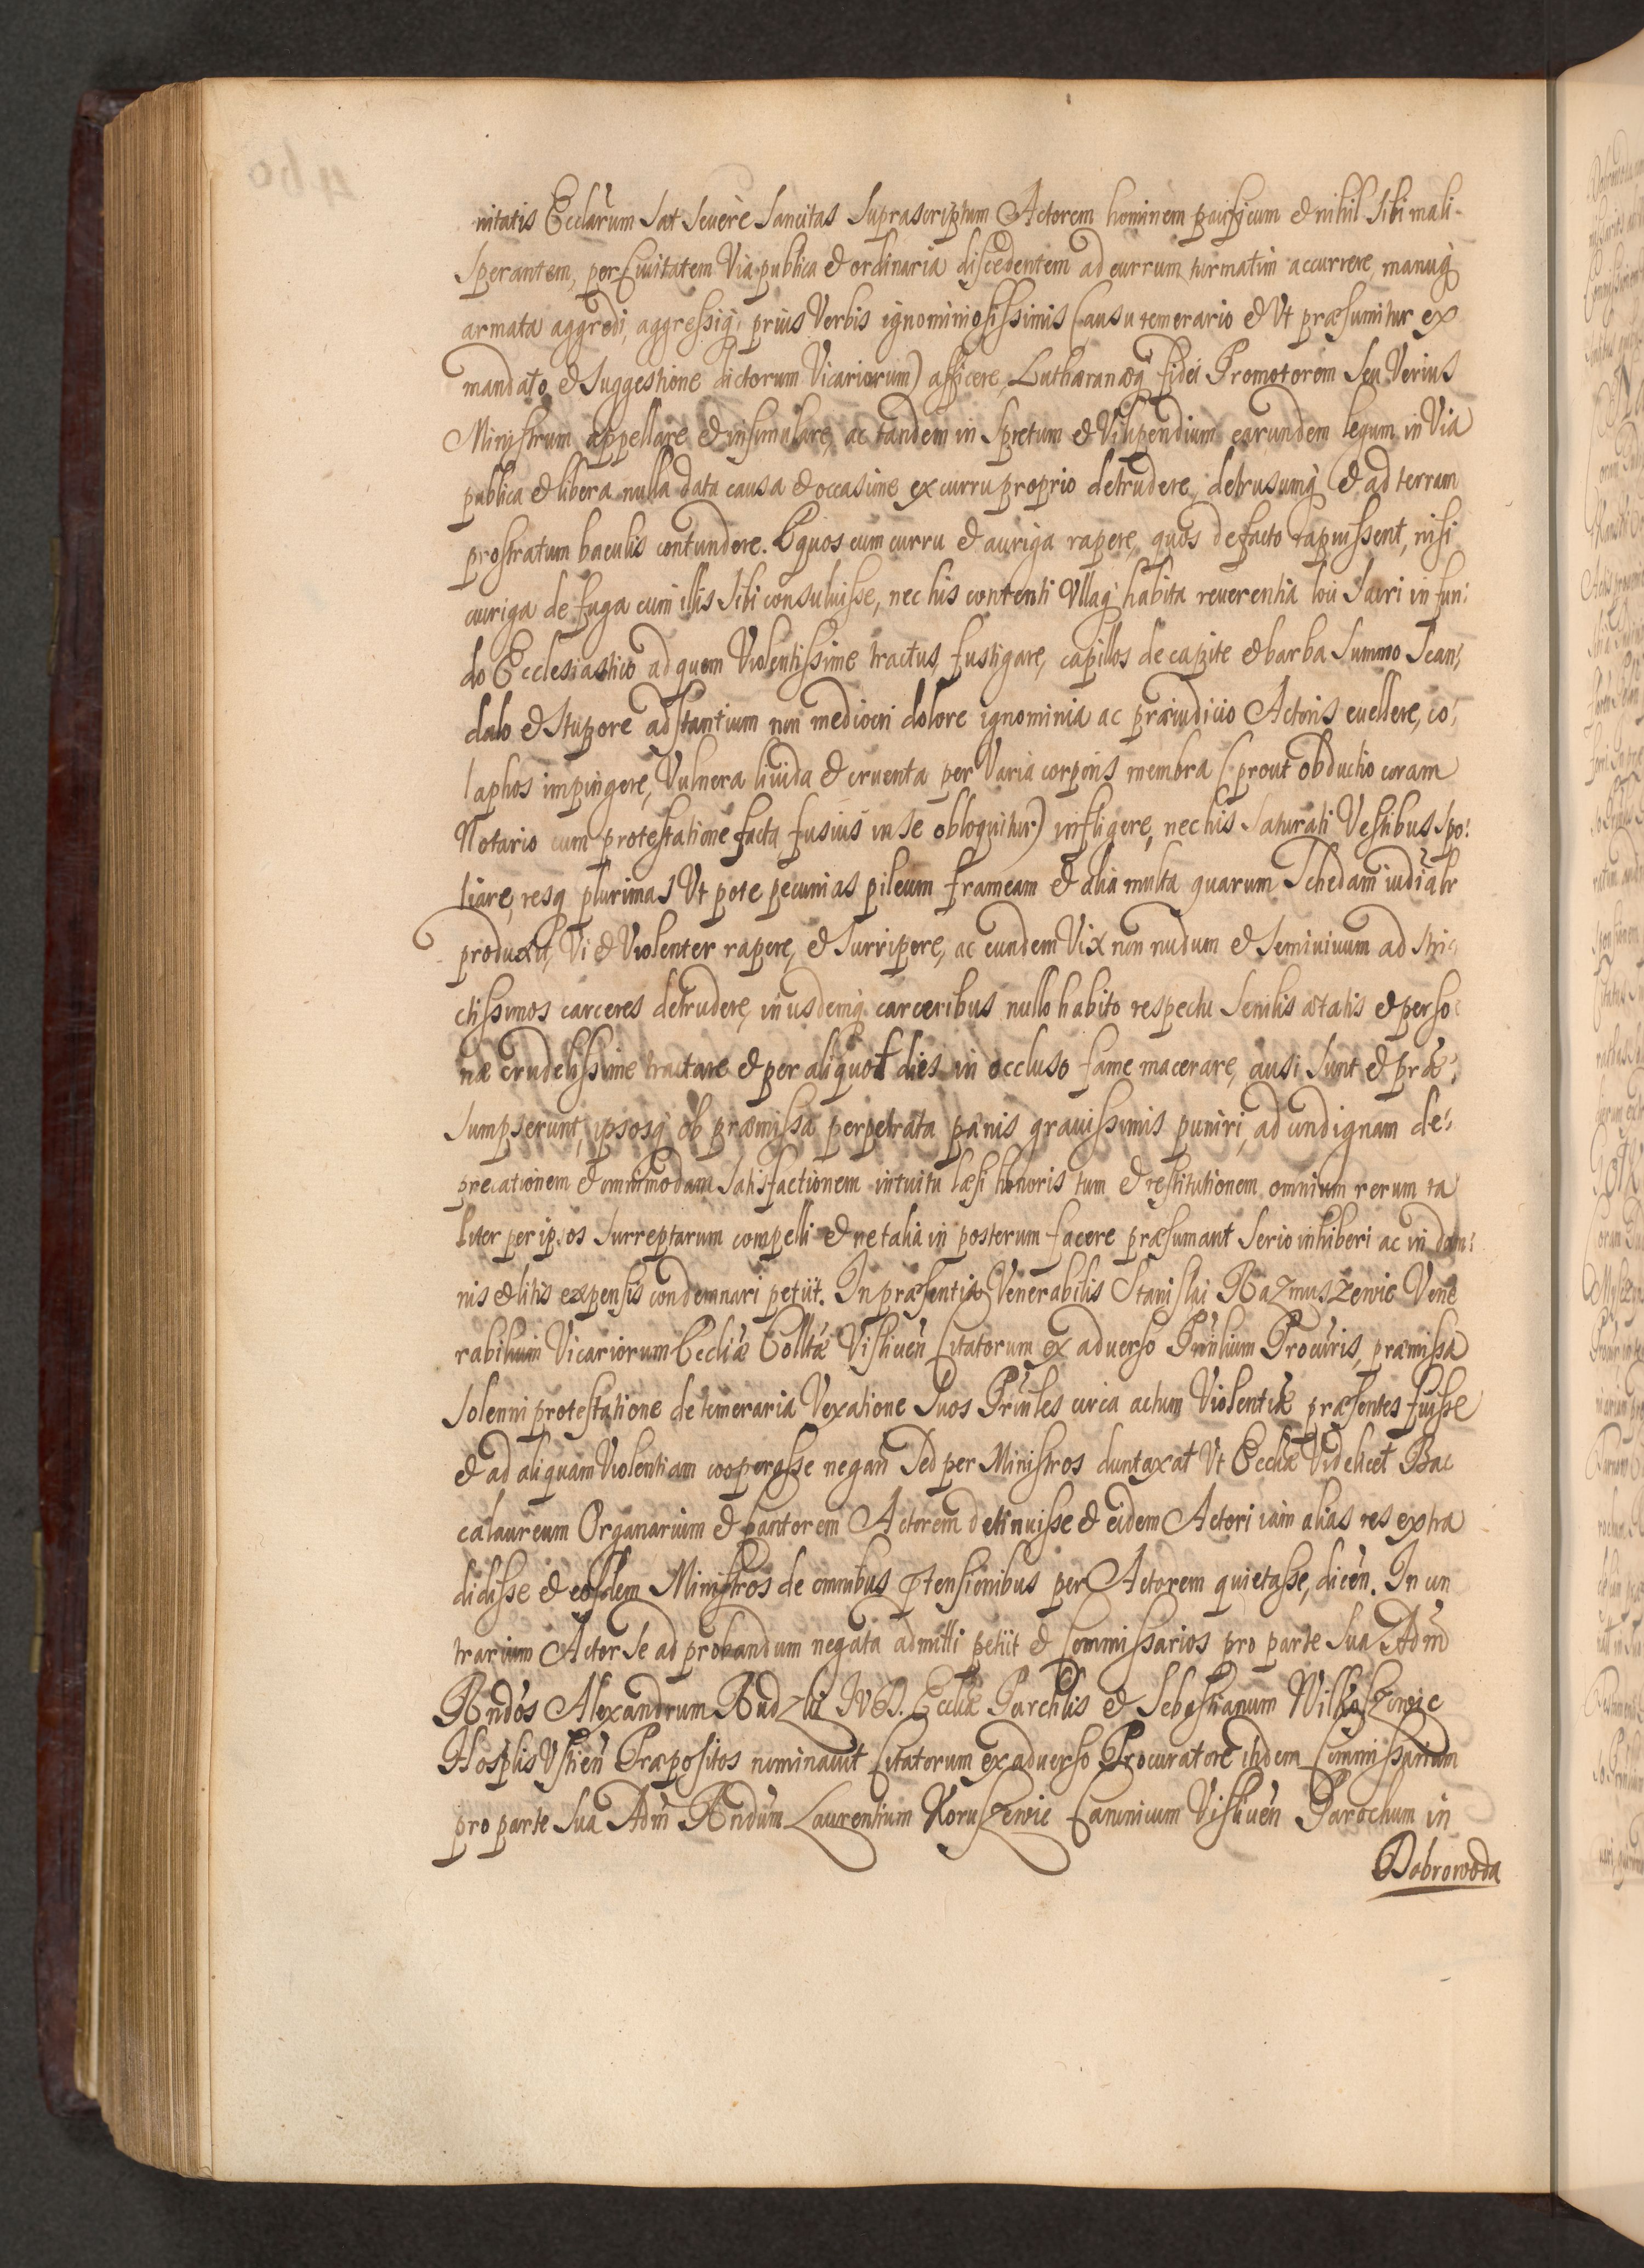 nitatis Ecclarum Sat Seuere Sancitas Suprascriptum Actorem hominem pacificum & nihil Sibi mali-
Sperantem, per Ciuitatem Via publica & ordinaria discedentem ad currum turmatim accurrere, manuq
armata aggredi, aggressiq prius Verbis ignominiosissimis (ausu temerario & Vt præsumitur ex
mandato & Suggestione dictorum Vicariorum) afficere, Lutheranæq fidei Promotorem Seu Verius
Ministrum appellare & insimulare, ac tandem in Spretum & Vilipendium earundem legum in Via
publica & libera nulla data causa & occasione ex curru proprio detrudere, detrusumq & ad terram
prostratum baculis contundere. Equos cum curru & auriga rapere, quos de facto rapuissent, nisi
auriga de fuga cum illis Sibi consuluisse, nec his contenti Vllaq habita reuerentia loci Sacri in fun:
do Ecclesiastico ad quem Violentissime tractus, fustigare, capillos de capite & barba Summo Scan:
dalo & Stupore adstantium non mediocri dolore ignominia ac præiudicio Actoris euellere, co:
laphos impingere, Vulnera liuida & cruenta per Varia corporis membra (prout obductio coram
Notario cum protestatione facta fusius in se obloquitur) infligere, nec his Saturati Vestibus Spo:
liare, resq plurimas Vt pote pecunias pileum frameam & alia multa quarum Schedam iudialr
produxit, Vi & Violenter rapere, & Surripere, ac eundem Vix non nudum & Seminiuum ad Stri:
ctissimos carceres detrudere, in usdemq carceribus nullo habito respectu Senilis ætatis & perso:
næ crudelissime tractare & per aliquot dies in occluso fame macerare, ausi Sunt & præ:
Sumpserunt, ipsosq ob præmissa perpetrata pænis grauissimis puniri, ad condignam de:
precationem & omnimodam Satisfactionem intuitu læsi honoris tum & restitutionem omnium rerum ta
liter per ipsos Surreptarum compelli & ne talia in posterum facere præsumant Serio inhiberi ac in dam:
nis & litis expensis condemnari petiit. In præsentia Venerabilis Stanislai Razmuszewic Vene
rabilium Vicariorum Eccliæ Colltæ Vislicen Citatorum ex aduerso Prinlium Procuris, præmissa
Solenni protestatione de temeraria Vexatione Suos Prinles circa actum Violentiæ præsentes fuisse
& ad aliquam Violentiam cooperasse negan Sed per Ministros duntaxat Vt Eccliæ Videlicet Bac
calaureum Organarium & Cantorem Actorem detinuisse & eidem Actori iam alias res extra
didisse & eosdem Ministros de omnibus ptensionibus per Actorem quietasse, dicen. In con
trarium Actor Se ad probandum negata admitti petiit & Commissarios pro parte Sua Adm
Rndos Alexandrum Rudzki IVD. Eccliæ Parchlis & Sebastianum Wilkoszewic
Hosplis Vstien Præpositos nominauit Citatorum ex aduerso Procuratore ibidem Commissarium
pro parte Sua Adm Rndum Laurentium Koruszewic Canonicum Vislicen Parochum in
Dobrowoda